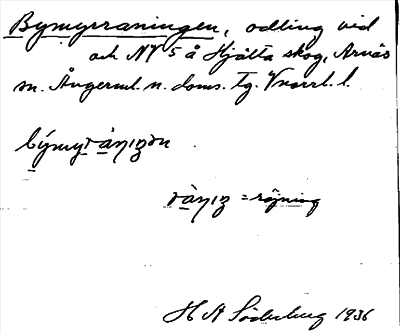 Bymyrraningen, odling vid
och NV 5 å Hjälta skog, Arnäs
sn. Ångerml. n. doms. Tg. Vnorrl. l.
= röjning
H A Söderberg 1936